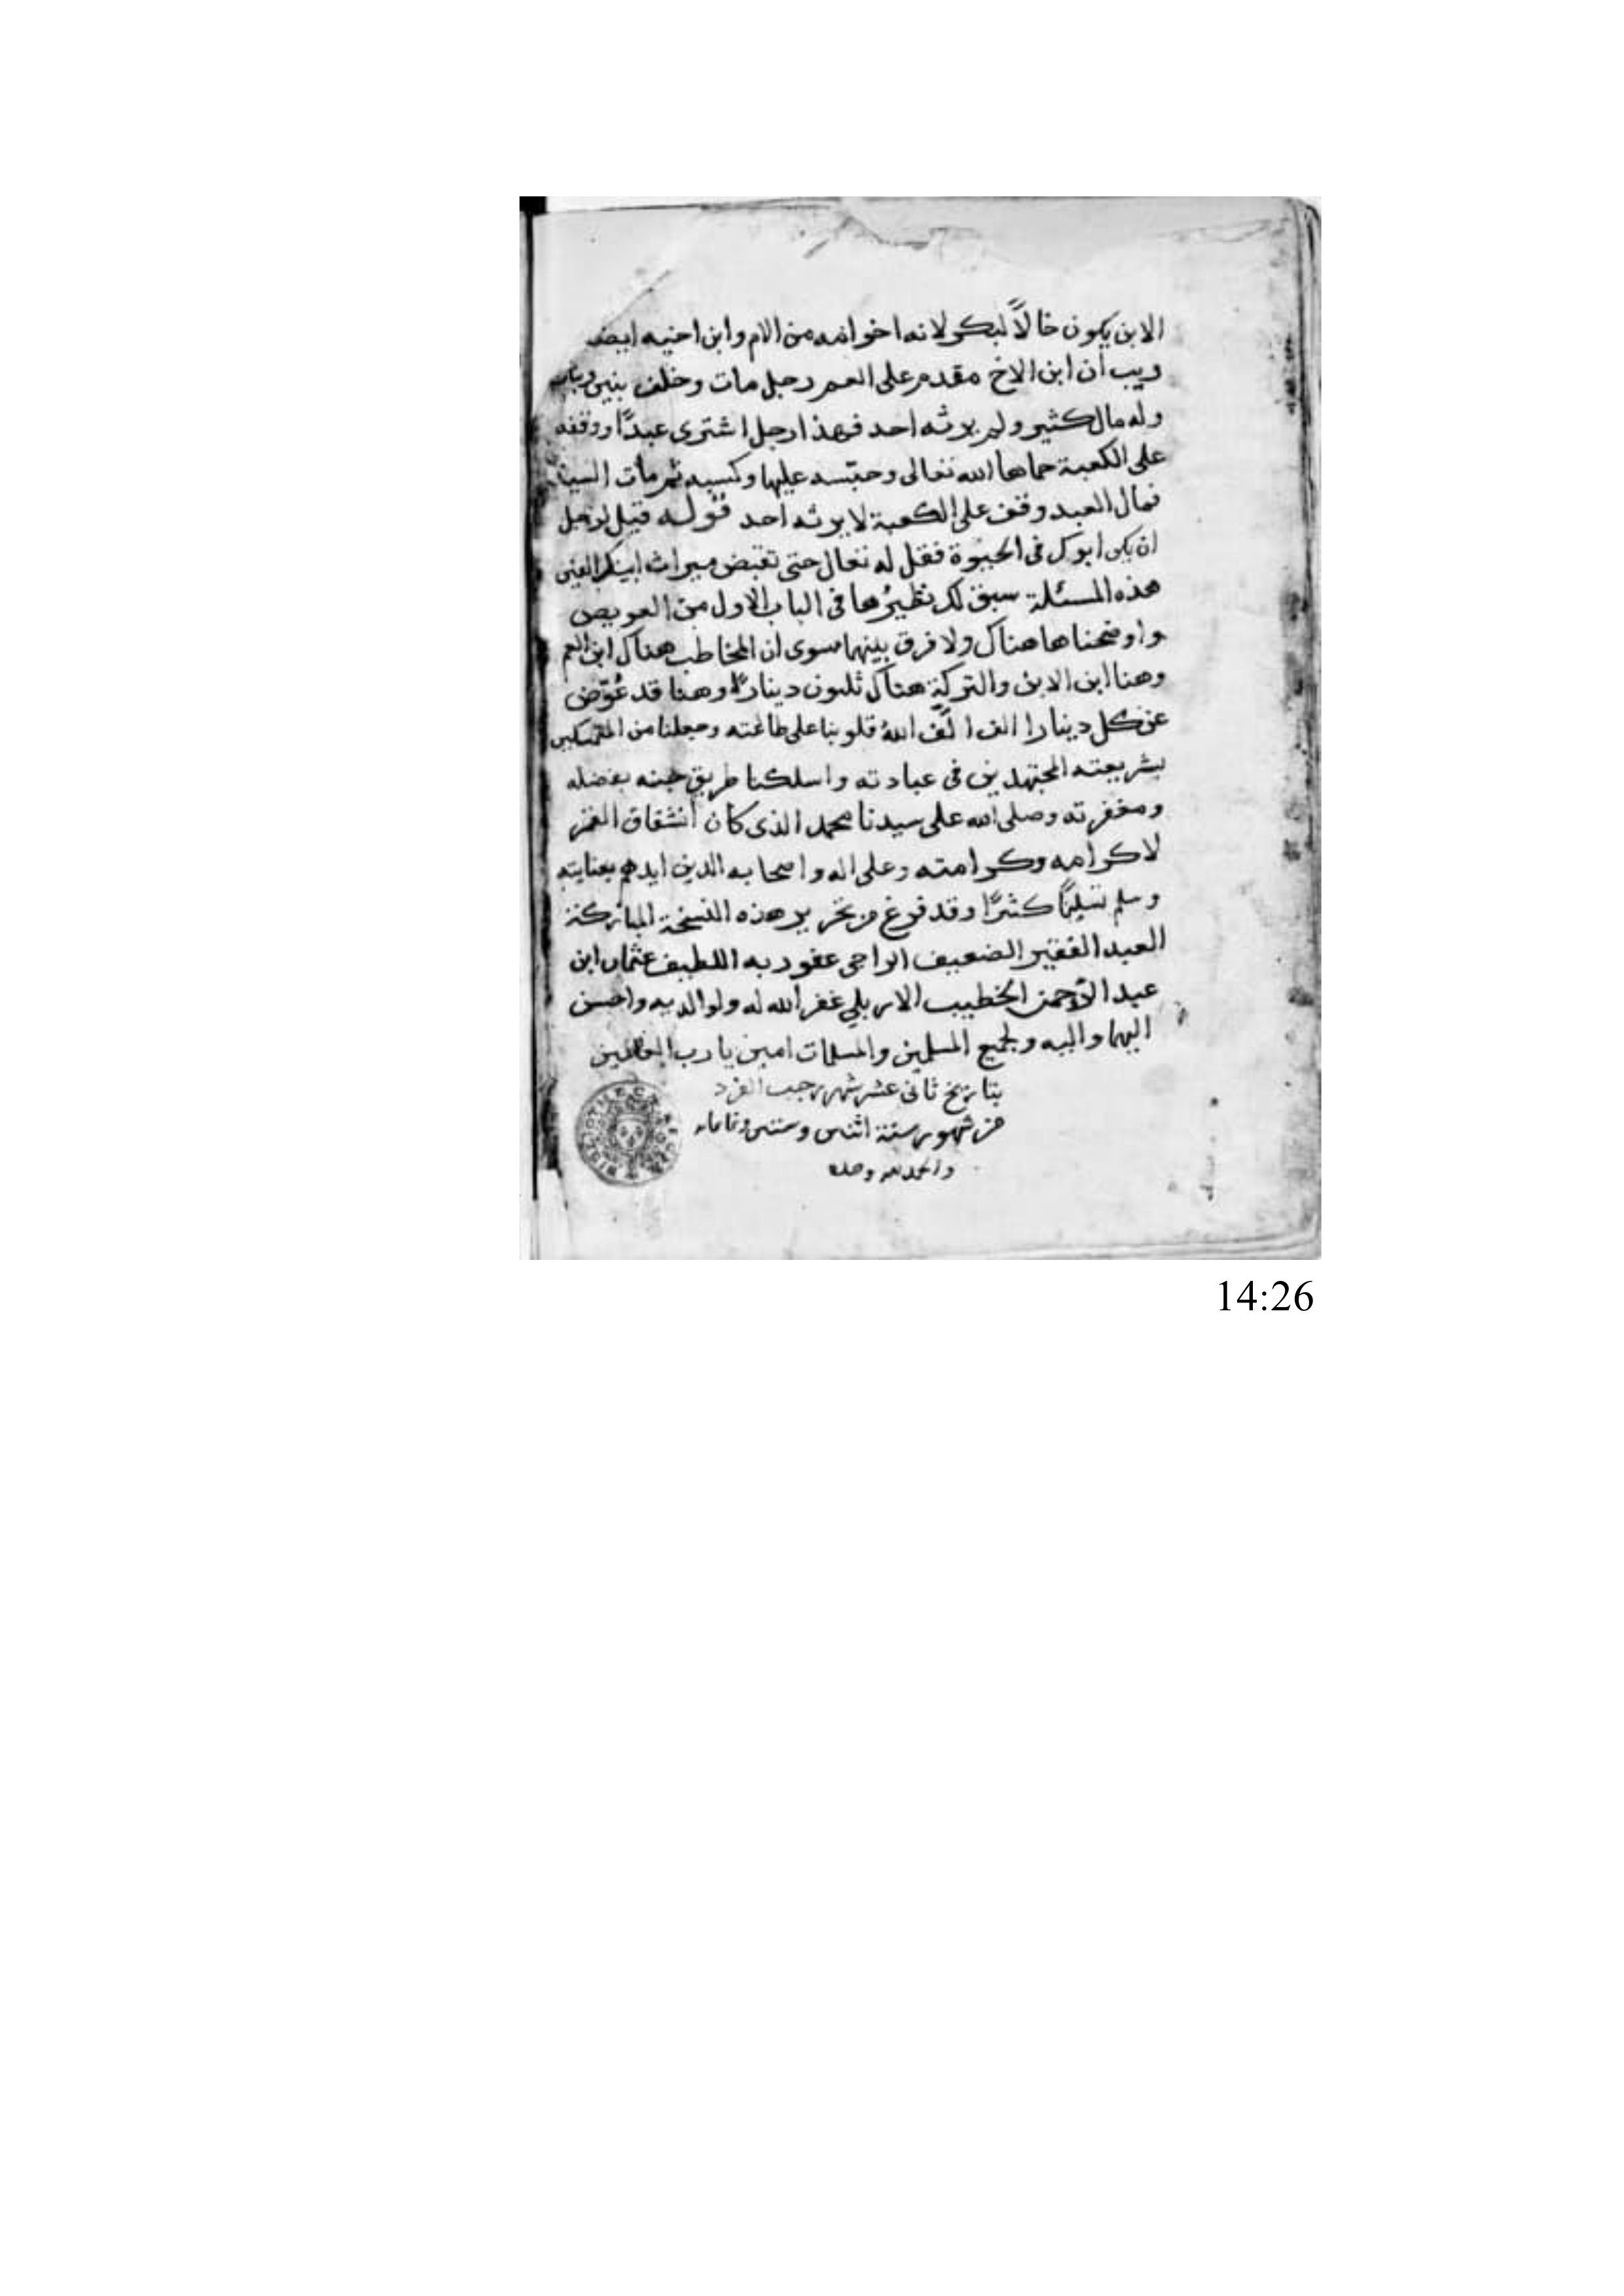 الابن يكون خالاً لبكر لانه اخو امه من الام وابن اخيه ايضا
وبب ان ابن الاخ مقدم على العم رجل مات وخلف بنين وبنات
وله مال كثير ولم يرثه احد فهذا رجل اشترى عبدًا ووقفه
على الكعبة حماها الله تعالى وحبّسه عليها وكسبه ثم مات السيد
فمال العبد وقف على الكعبة لا يرثه احد قوله قيل لرجل
ان يكن ابوك في الحيوة فقل له تعال حتى تقبض ميراث ابيك الغني
هذه المسئلة سبق لك نظيرُها في الباب الاول من العويص
واوضحناها هناك ولا فرق بينهما سوى ان المخاطب هناك ابن العم
وهنا ابن الابن والتركة هناك ثلثون دينارًا وهنا قد عُوّض
عن كل دينار الف الّف اللهُ قلوبنا على طاعته وجعلنا من المتمسكين
بشريعته المجتهدين في عبادته واسلكنا طريق جنته بفضله
ومغفرته وصلى الله على سيدنا محمد الذي كان انشقاق القمر
لاكرامه وكرامته وعلى اله واصحابه الدين ايدهم بعنايته
وسلم تسليمًا كثيرًا وقد فرغ من تحرير هذه النسخة المباركة
العبد الفقير الضعيف الراجي عفو ربه اللطيف عثمان ابن
عبد الرحمن الخطيب الاربلي غفر الله له ولوالديه واحسن
اليهما واليه ولجميع المسلمين والمسلمات امين يا رب العالمين
بتاريخ ثاني عشر شهر رجب الفرد
من شهور سنة اثنين وستين وثمانمائه
والحمد لله وحده
14:26